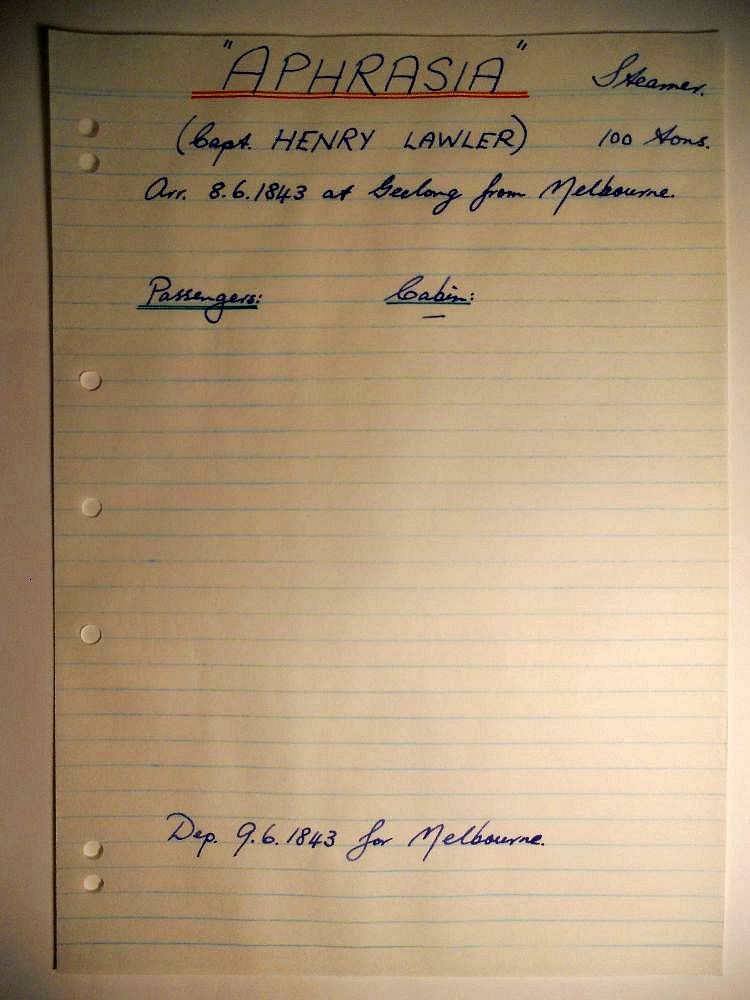 "APHRASIA" Steamer.
(Capt. HENRY LAWLER) 100 tons.
Arr. 8.6.1843 at Geelong from Melbourne.
Passengers: Cabin:
—
Dep. 9.6.1843 for Melbourne.